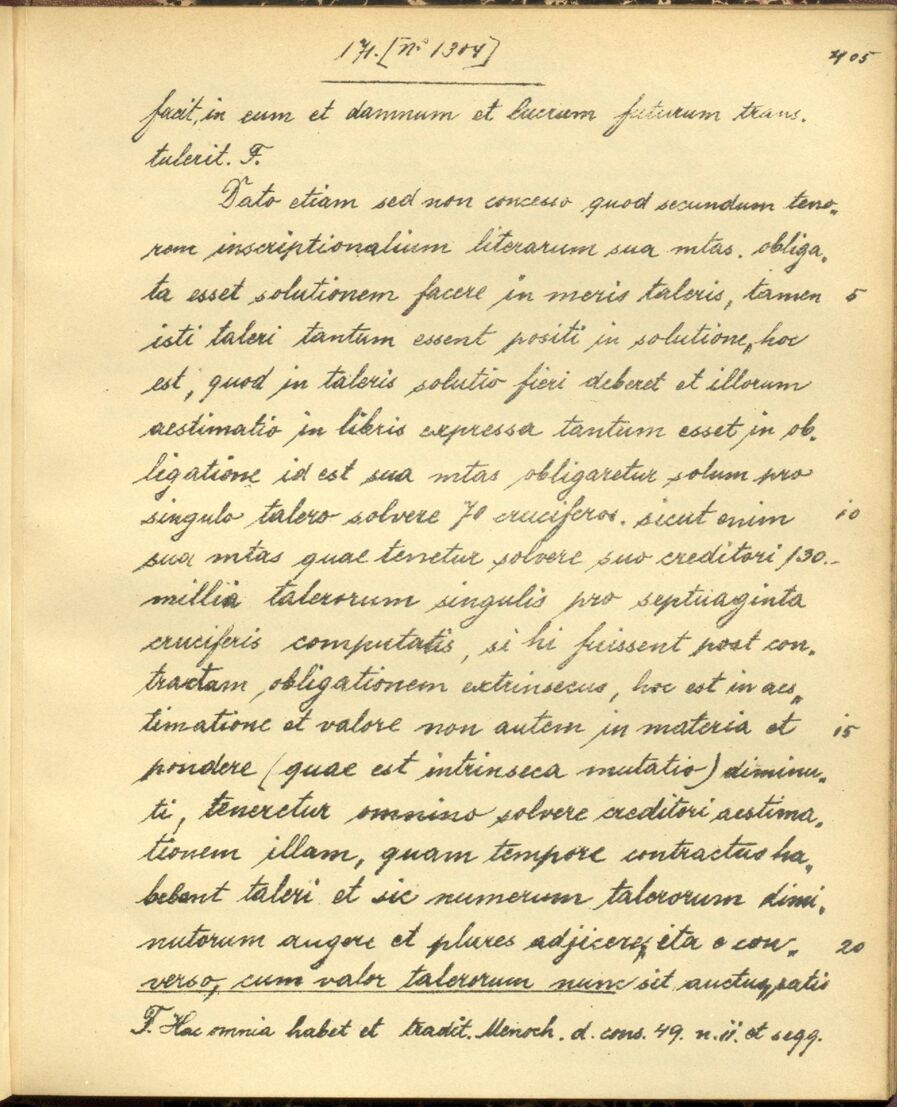 171. [nº 1304] 405
facit, in eum et damnum et lucrum futurum trans-
tulerit. F.
Dato etiam sed non concesso quod secundum teno-
rem inscriptionalium literarum sua mtas. obliga-
ta esset solutionem facere in meris taleris, tamen 5
isti taleri tantum essent positi in solutione, hoc
est, quod in taleris solutio fieri deberet et illorum
aestimatio in libris expressa tantum esset in ob-
ligatione id est sua mtas obligaretur solum pro
singulo talero solvere 70 cruciferos. sicut enim 10
sua mtas quae tenetur solvere suo creditori 130.-
millia talerorum singulis pro septuaginta
cruciferis computatis, si hi fuissent post con-
tractam obligationem extrinsecus, hoc est in aes-
timatione et valore non autem in materia et 15
pondere (quae est intrinseca mutatio) diminu-
ti, teneretur omnino solvere creditori aestima-
tionem illam, quam tempore contractus ha-
bebant taleri et sic numerum talerorum dimi-
nutorum augere et plures adjicere, ita e con- 20
verso, cum valor talerorum nunc sit auctus, satis
F. Hac omnia habet et tradit. Menoch. d. cons. 49. n. ii. et segg.